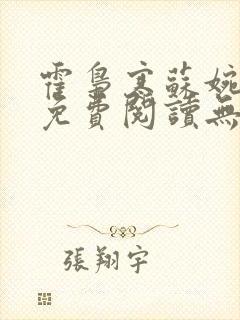 霍梟寒蘇婉
免費閱讀無
張翔宇